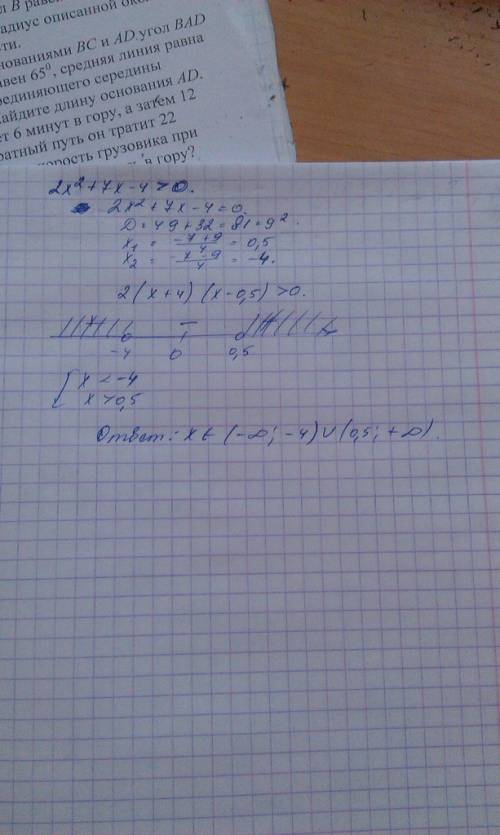 л В равен
адиус описанной ок
ти.
нованиями BC и AD.угол BAD
авен 65⁰, средняя линия равна
единяющего середины
айдите длину основания AD.
ет 6 минут в гору, а затем 12
ратный путь он тратит 22
корость грузовика при
в гору?
2x²+7x-4>0.
2x²+7x-4=0.
D=49+32=81=9².
x₁ = -7+9/4 = 0,5
x₂ = -7-9/4 = -4.
2(x+4)(x-0,5)>0.
-4 0 0,5
x<-4
x>0,5
Ответ: x∈(-∞;-4)∪(0,5;+∞).